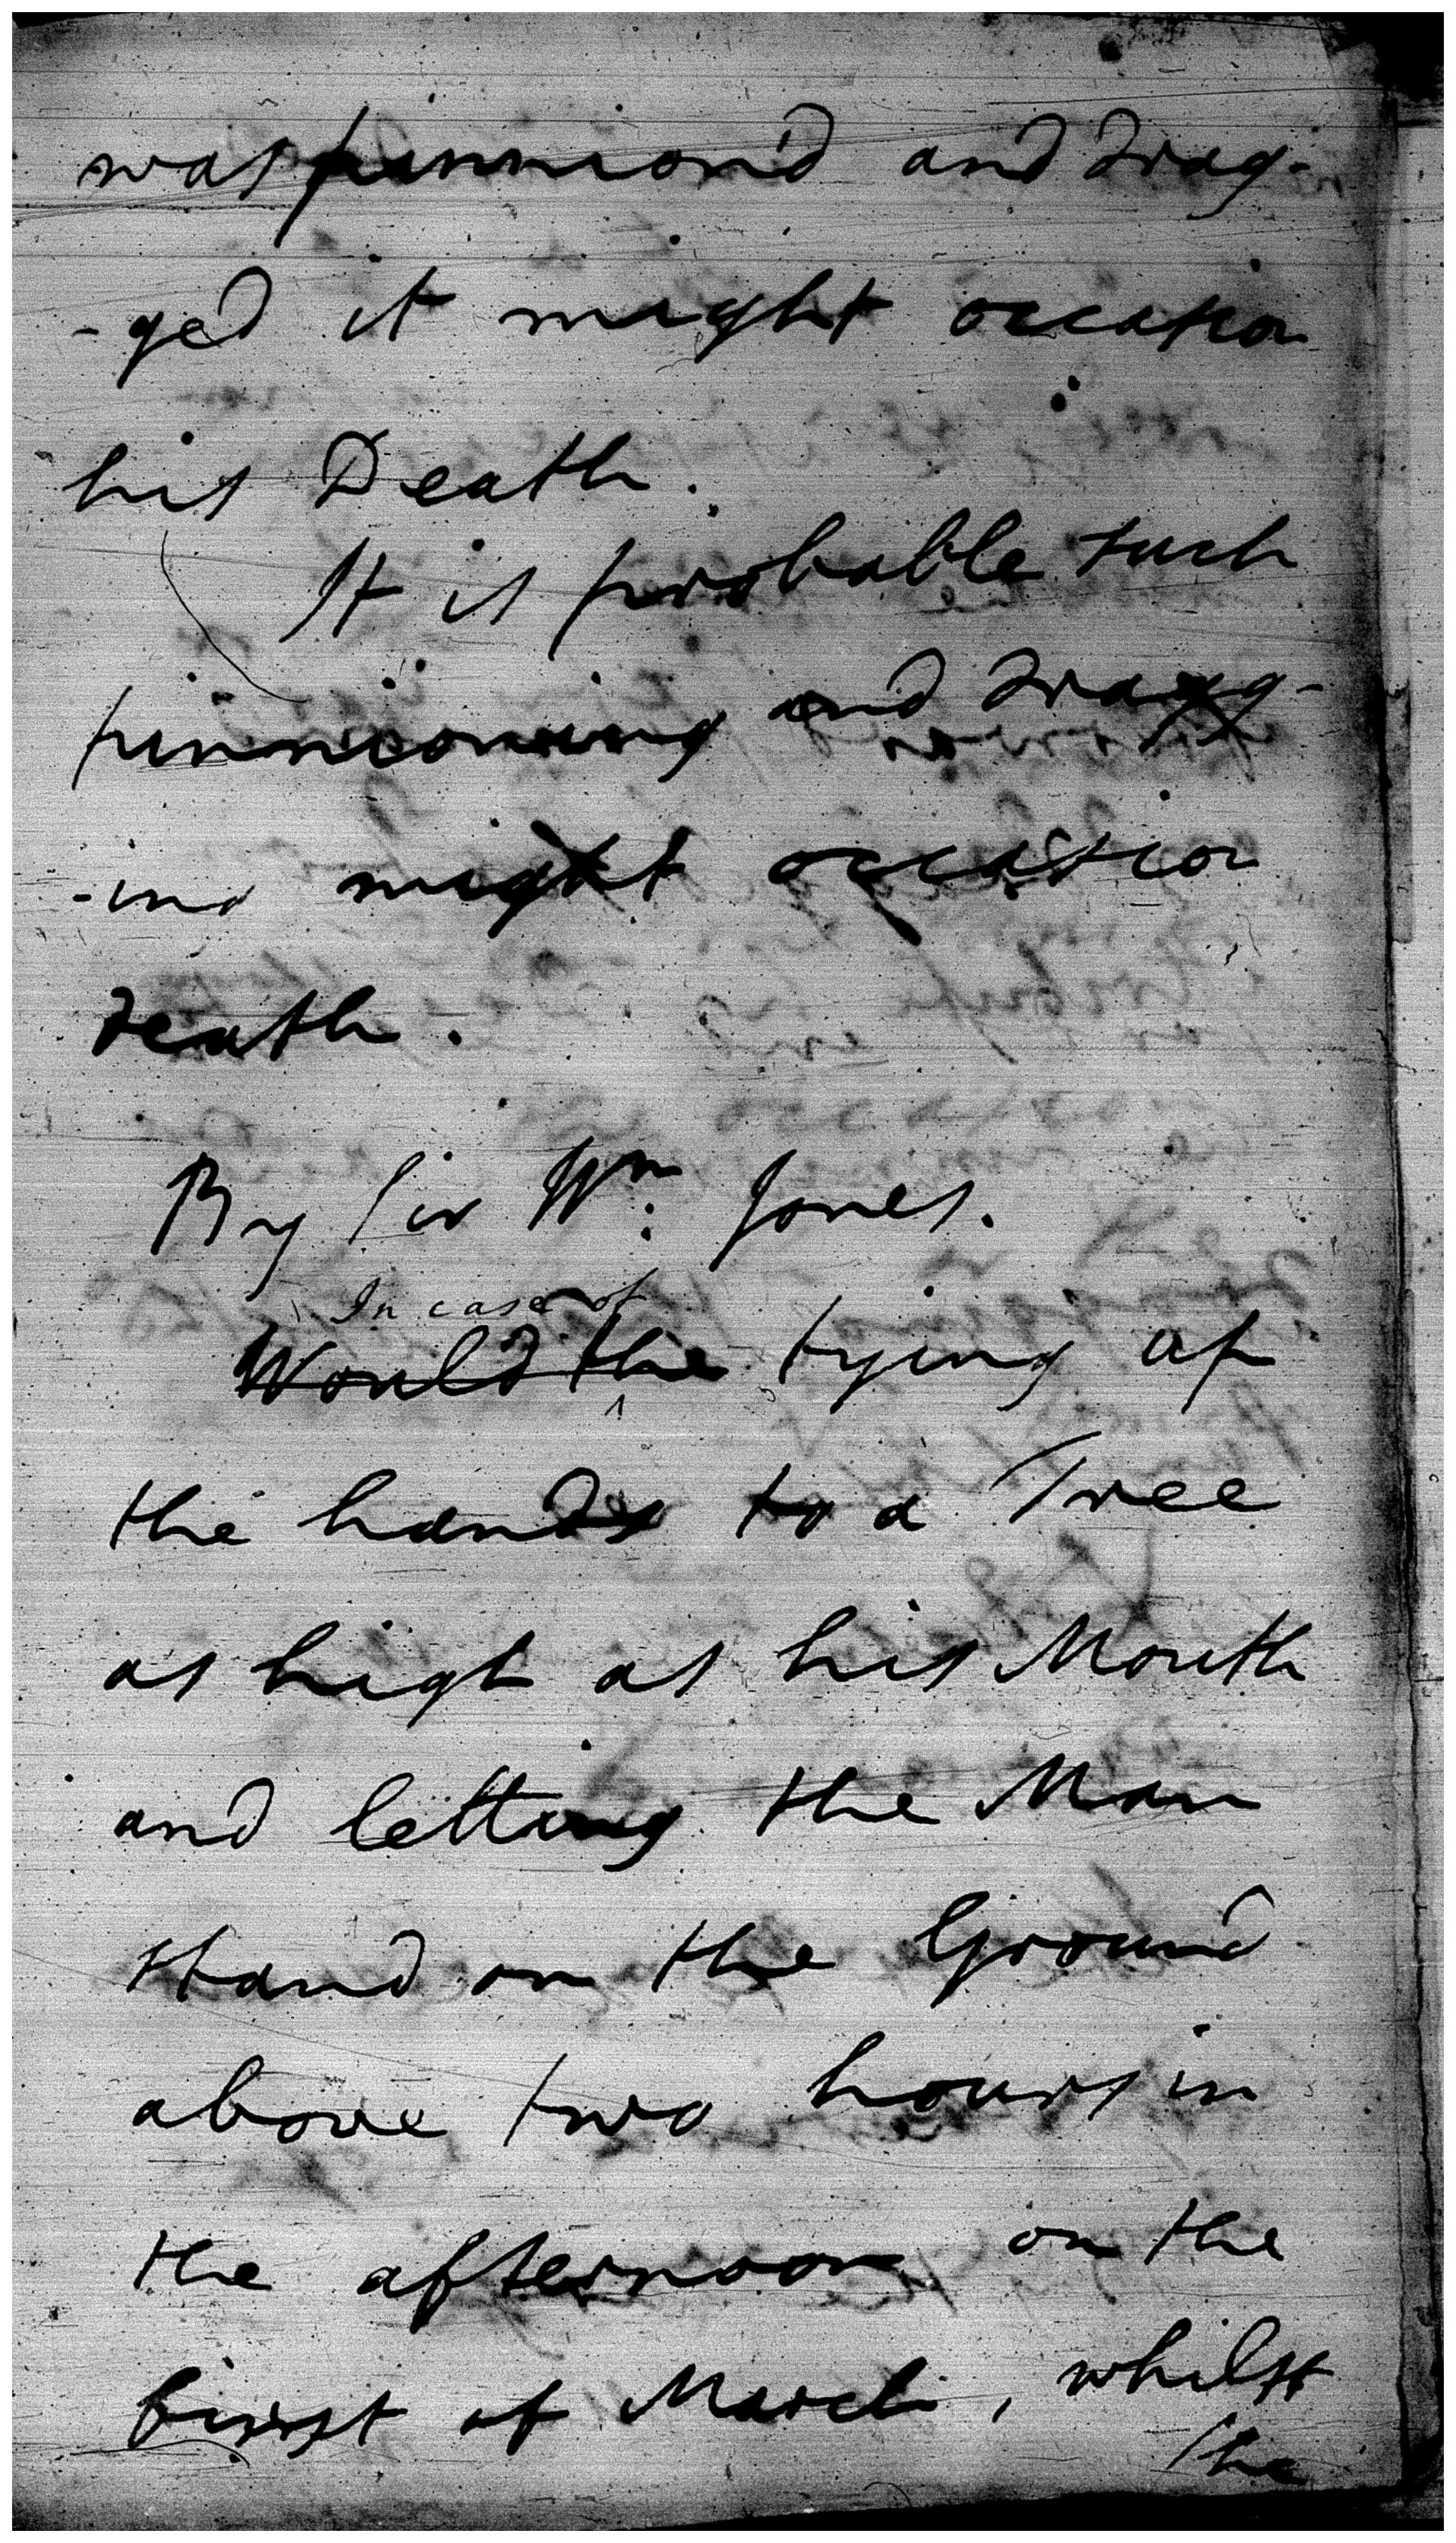 was pinnion'd and drag-
-ged it might occasion
his Death.
It is probable such
pinnioning and dragg-
-ing might occasion
death.
By Sir Wm: Jones.
In case of
Would the tying up
the hands to a Tree
as high as his Mouth
and letting the Man
stand on the Ground
above two hours in
the afternoon on the
first of March, whilst
the